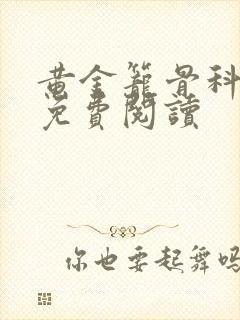 黄金籠骨科
免費閱讀
你也要起舞嗎